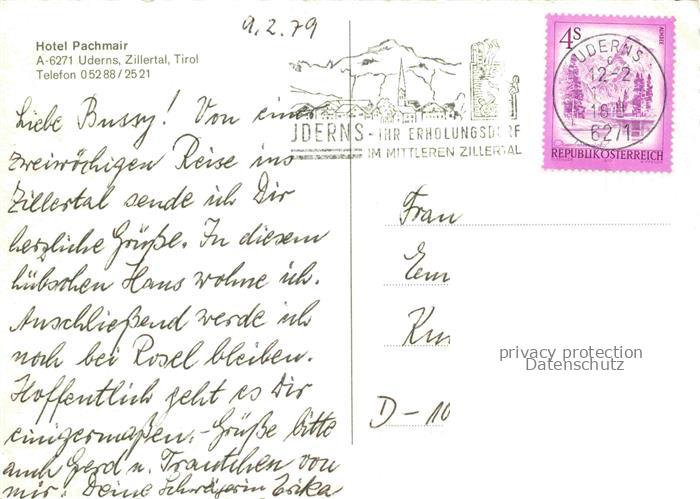 9.2.79
Hotel Pachmair
A-6271 Uderns, Zillertal, Tirol
Telefon 05288/2521
4s
UDERNS
12-2
6271
REPUBLIK ÖSTERREICH
UDERNS - IHR ERHOLUNGSDORF
IM MITTLEREN ZILLERTAL
Liebe Bussy! Von einer
zweiwöchigen Reise ins
Zillertal sende ich Dir
herzliche Grüße. In diesem
hübschen Haus wohne ich.
Anschließend werde ich
noch bei Rosel bleiben.
Hoffentlich geht es Dir
einigermaßen. - Grüße bitte
auch Gerd u. Trautchen von
mir. Deine Schwägerin Erika
Frau
D-10
privacy protection
Datenschutz